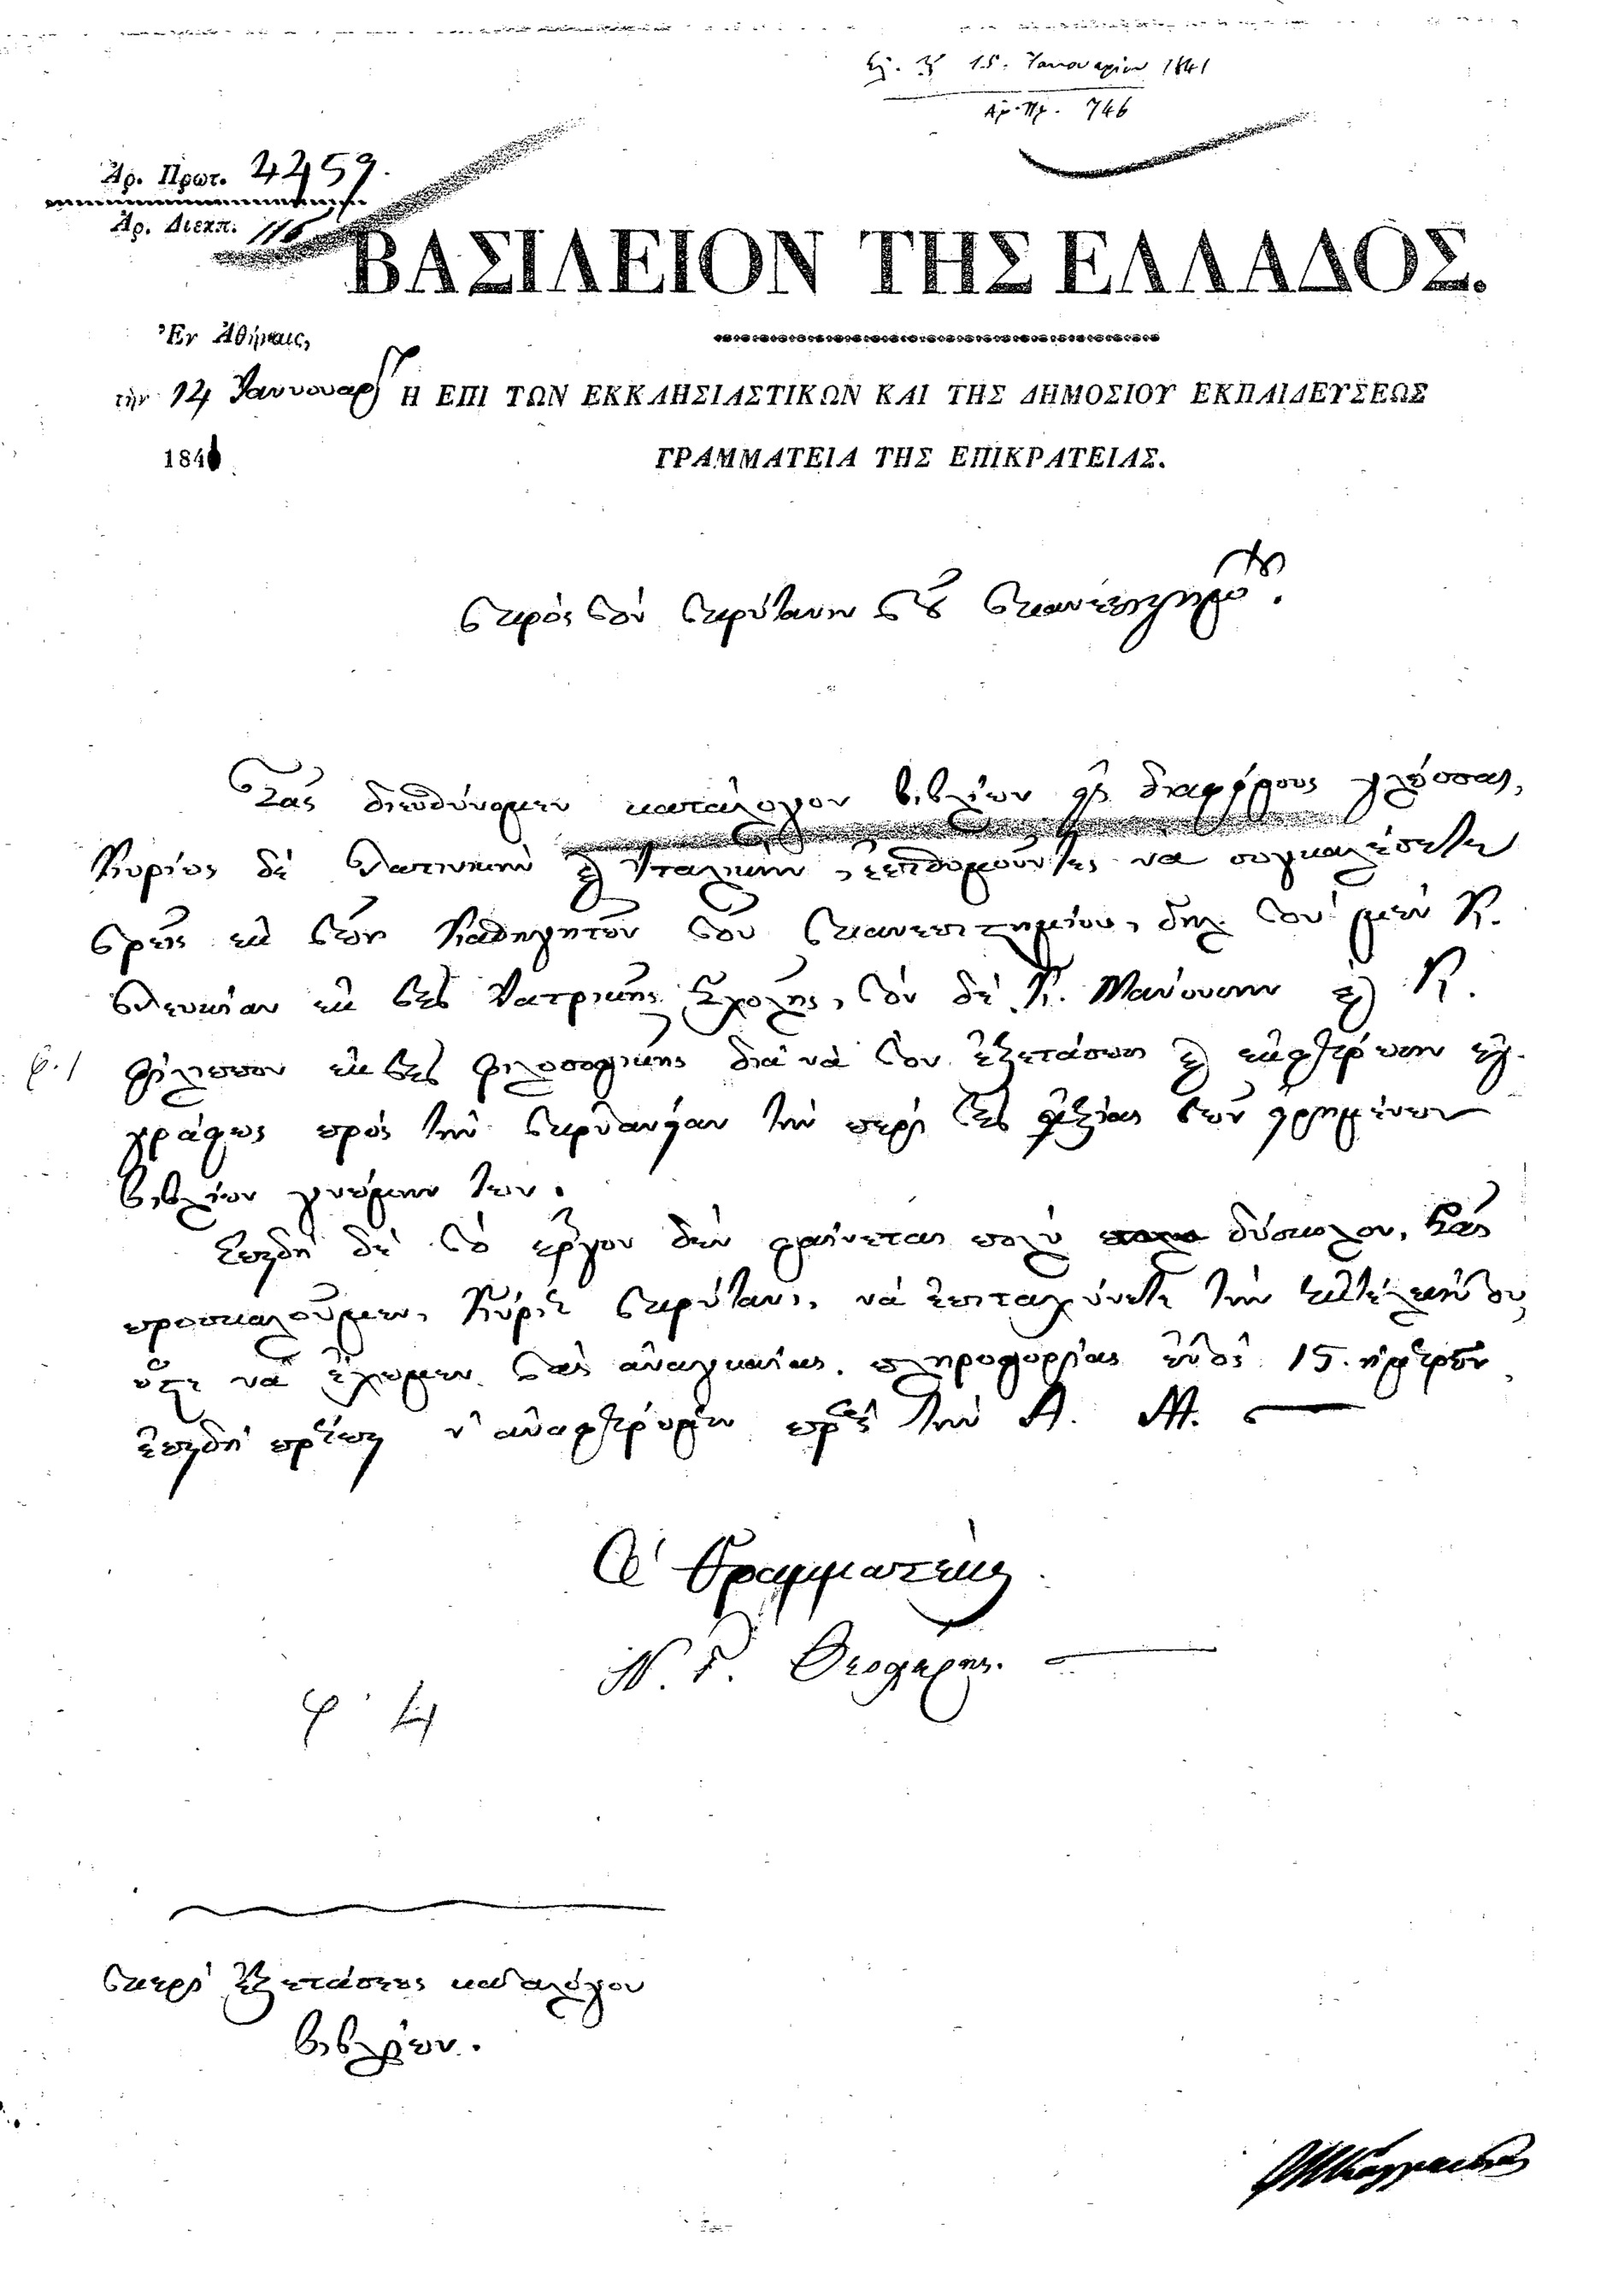 15. Ἰανουαρίου 1841
Ἀρ. Πρ. 746
Ἀρ. Πρωτ. 4459.
Ἀρ. Διεκπ.
ΒΑΣΙΛΕΙΟΝ ΤΗΣ ΕΛΛΑΔΟΣ.
Ἐν Ἀθήναις,
τὴν 14 Ἰαννουαρ
1841
Η ΕΠΙ ΤΩΝ ΕΚΚΛΗΣΙΑΣΤΙΚΩΝ ΚΑΙ ΤΗΣ ΔΗΜΟΣΙΟΥ ΕΚΠΑΙΔΕΥΣΕΩΣ
ΓΡΑΜΜΑΤΕΙΑ ΤΗΣ ΕΠΙΚΡΑΤΕΙΑΣ.
Πρὸς τὸν Πρύτανιν τοῦ Πανεπιστημίου.
Σᾶς διευθύνομεν κατάλογον βιβλίων εἰς διαφόρους γλώσσας,
κυρίως δὲ Λατινικὴν καὶ Ἰταλικὴν, ἐπιθυμοῦντες νὰ συγκαλέσετε
τρεῖς ἐκ τῶν Καθηγητῶν τοῦ Πανεπιστημίου, δηλ. τὸν μὲν Κ.
Λευκίαν ἐκ τῆς Ἰατρικῆς Σχολῆς, τὸν δὲ Κ. Μανούσην καὶ Κ.
Φίλιππον ἐκ τῆς φιλοσοφικῆς διὰ νὰ τὸν ἐξετάσωσι καὶ ἐκφέρωσιν ἐγ-
γράφως πρὸς τὴν Πρυτανείαν τὴν περὶ τῆς ἀξίας τῶν εἰρημένων
βιβλίων γνώμην των.
Ἐπειδὴ δὲ τὸ ἔργον δὲν φαίνεται πολὺ δύσκολον, Σᾶς
προσκαλοῦμεν, Κύριε Πρύτανι, νὰ ἐπιταχύνετε τὴν ἐκτέλεσίν του,
ὥστε νὰ ἔχωμεν τὰς ἀναγκαίας πληροφορίας ἐντὸς 15 ἡμερῶν,
ἐπειδὴ πρέπει ν' ἀναφέρωμεν πρὸς τὴν Α. Μ.
Ὁ Γραμματεὺς
Ν. Γ. Θεοχάρης.
φ. 4
Περὶ ἐξετάσεως καταλόγου
βιβλίων.